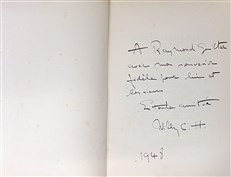 A Raymond
avec mon souvenir
fidèle pour lui et
les siens
En toute amitié
1948